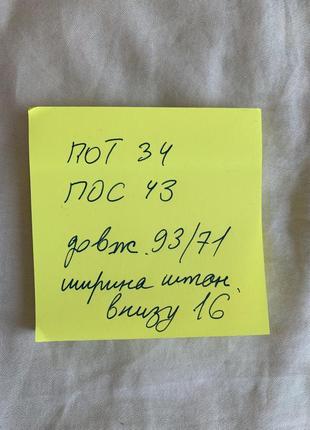 ПОТ 34
ПОС 43
довж. 93/71
ширина штан.
внизу 16